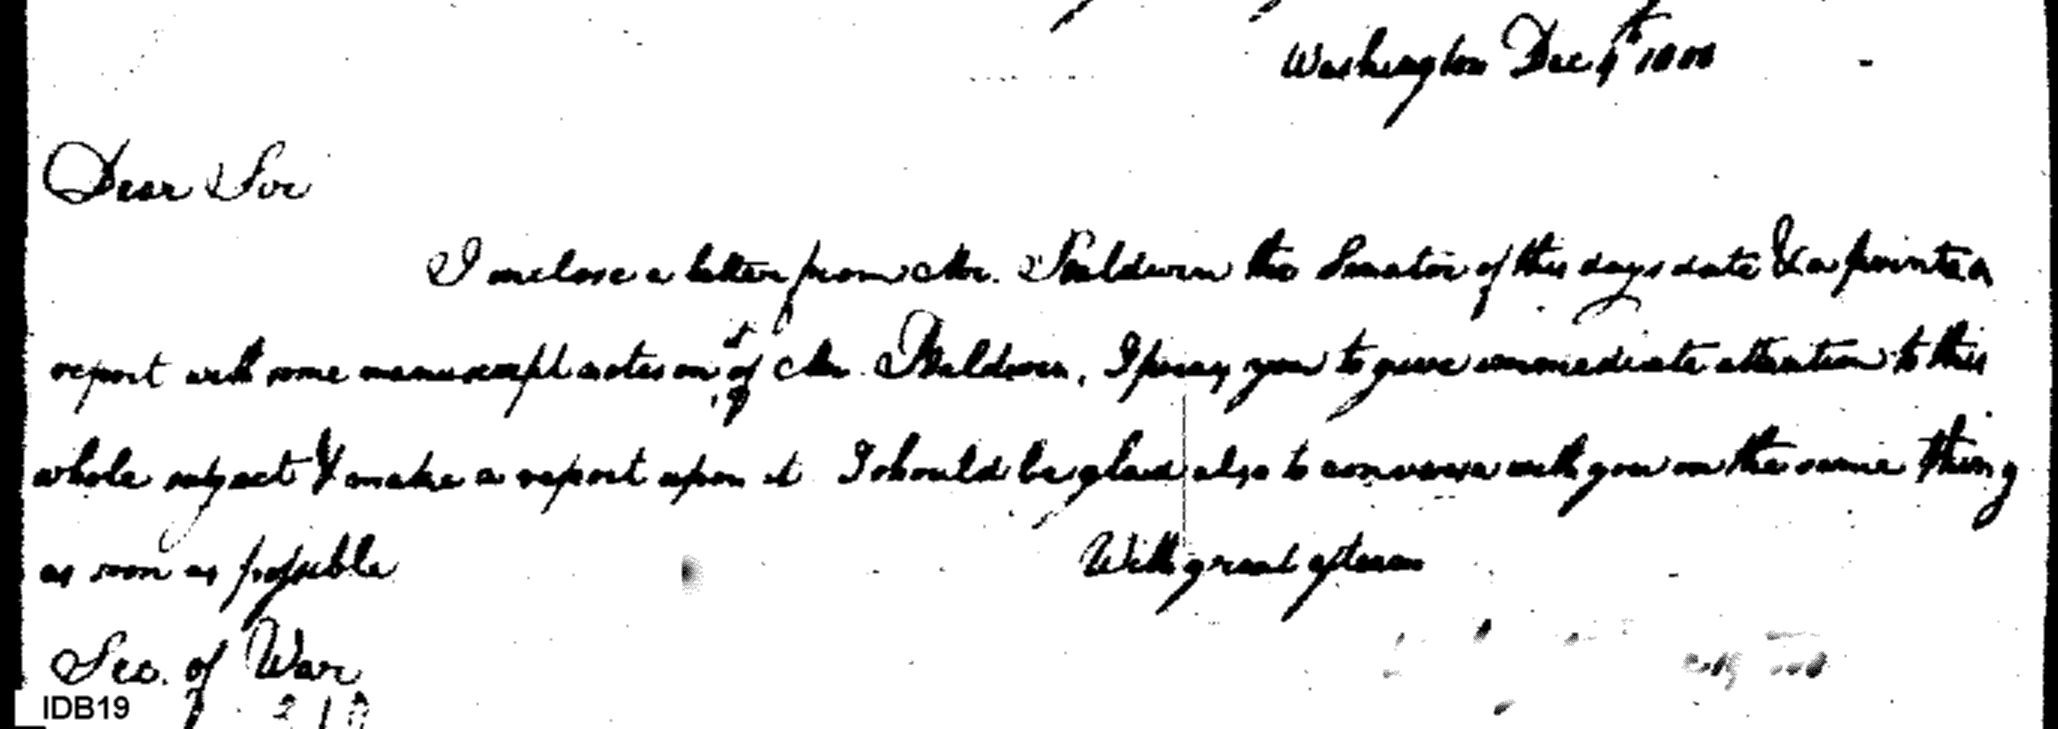 Washington Dec 4th 1800
Dear Sir
I inclose a letter from Mr. Baldwin the Senator of this days date & a printed
report with some manuscript notes on it of Mr. Baldwin. I pray you to give immediate attention to this
whole subject & make a report upon it I should be glad also to converse with you on the same thing
as soon as possible
With great esteem
Sec. of War
IDB19